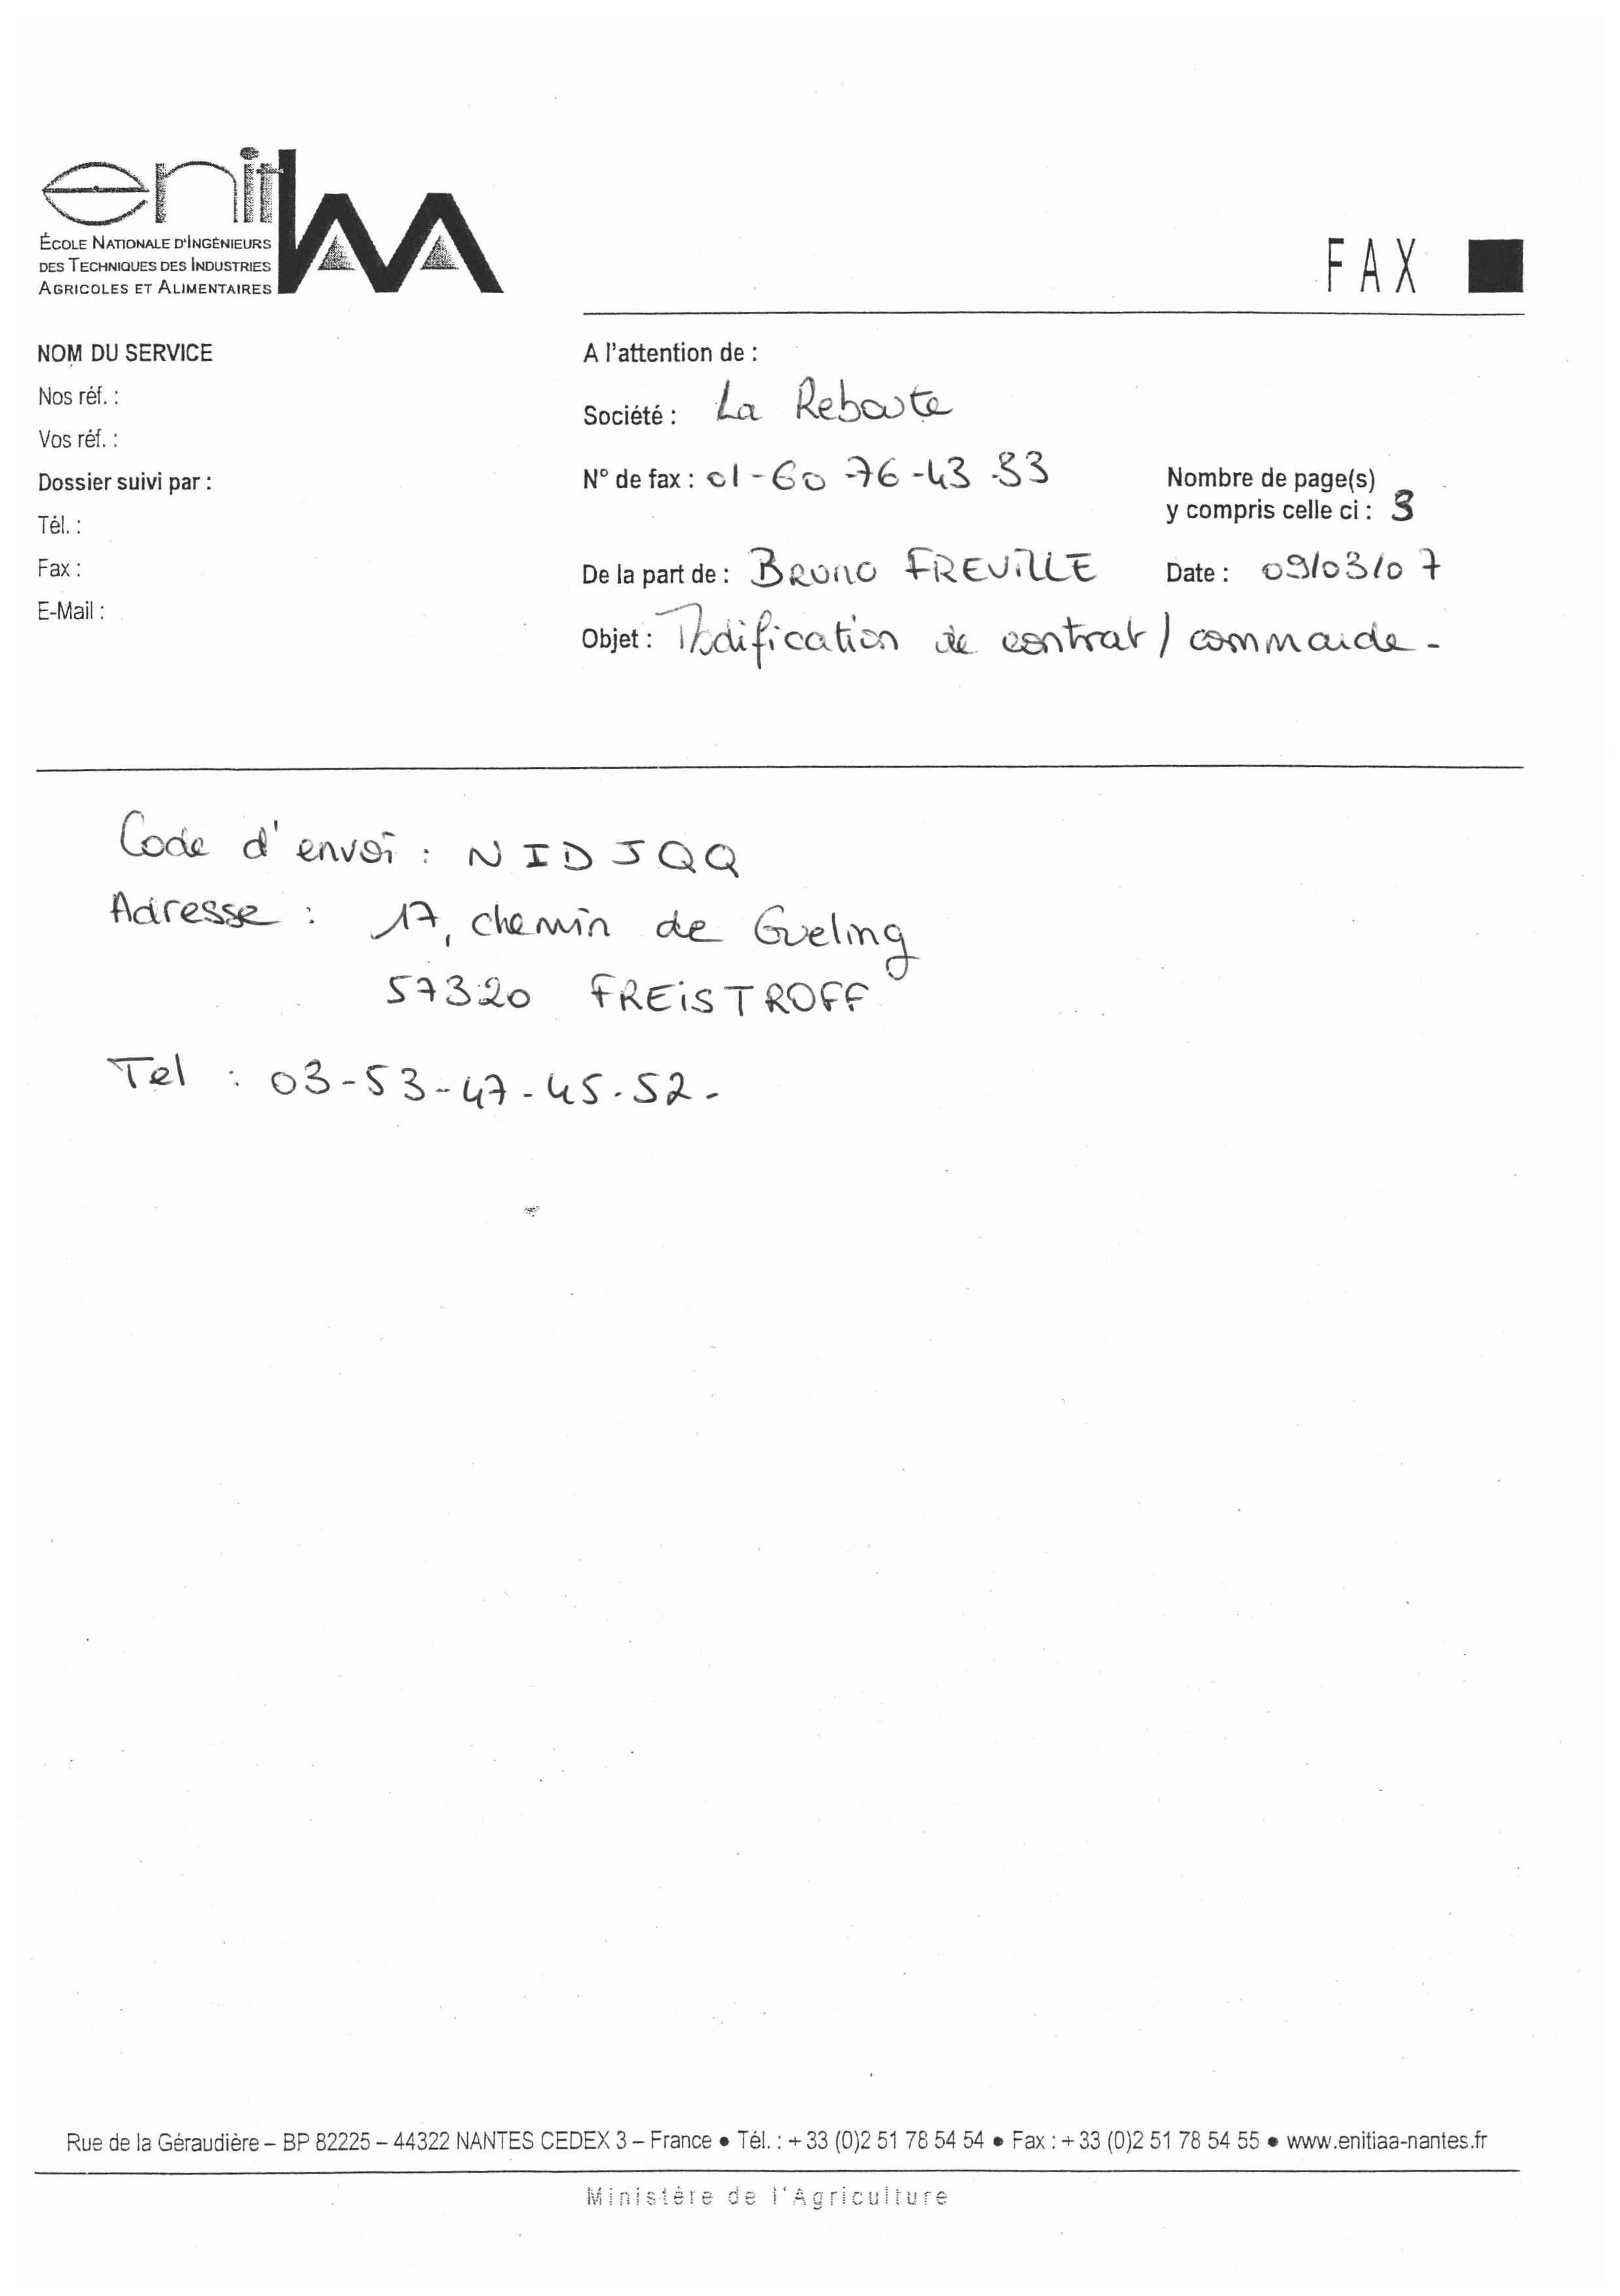 enitIAA
ÉCOLE NATIONALE D'INGÉNIEURS
DES TECHNIQUES DES INDUSTRIES
AGRICOLES ET ALIMENTAIRES
FAX
NOM DU SERVICE
Nos réf. :
Vos réf. :
Dossier suivi par :
Tél. :
Fax :
E-Mail :
A l'attention de :
Société : La Reboute
N° de fax : 01-60-76-43-33
Nombre de page(s)
y compris celle ci : 3
De la part de : BRUNO FREVILLE
Date : 09/03/07
Objet : Modification de contrat / commande -
Code d'envoi : NIDJQQ
Adresse : 17, chemin de Gueling
57320 FREISTROFF
Tel : 03-53-47-45-52-
Rue de la Géraudière – BP 82225 – 44322 NANTES CEDEX 3 – France • Tél. : + 33 (0)2 51 78 54 54 • Fax : + 33 (0)2 51 78 54 55 • www.enitiaa-nantes.fr
Ministère de l'Agriculture